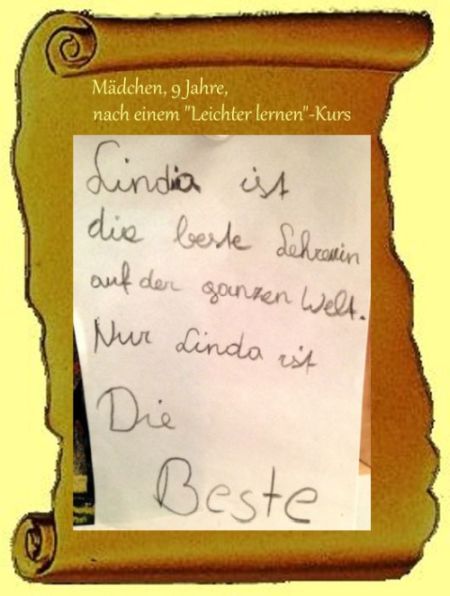 Mädchen, 9 Jahre,
nach einem "Leichter lernen"-Kurs
Linda ist
die beste Lehrerin
auf der ganzen Welt.
Nur Linda ist
Die
Beste